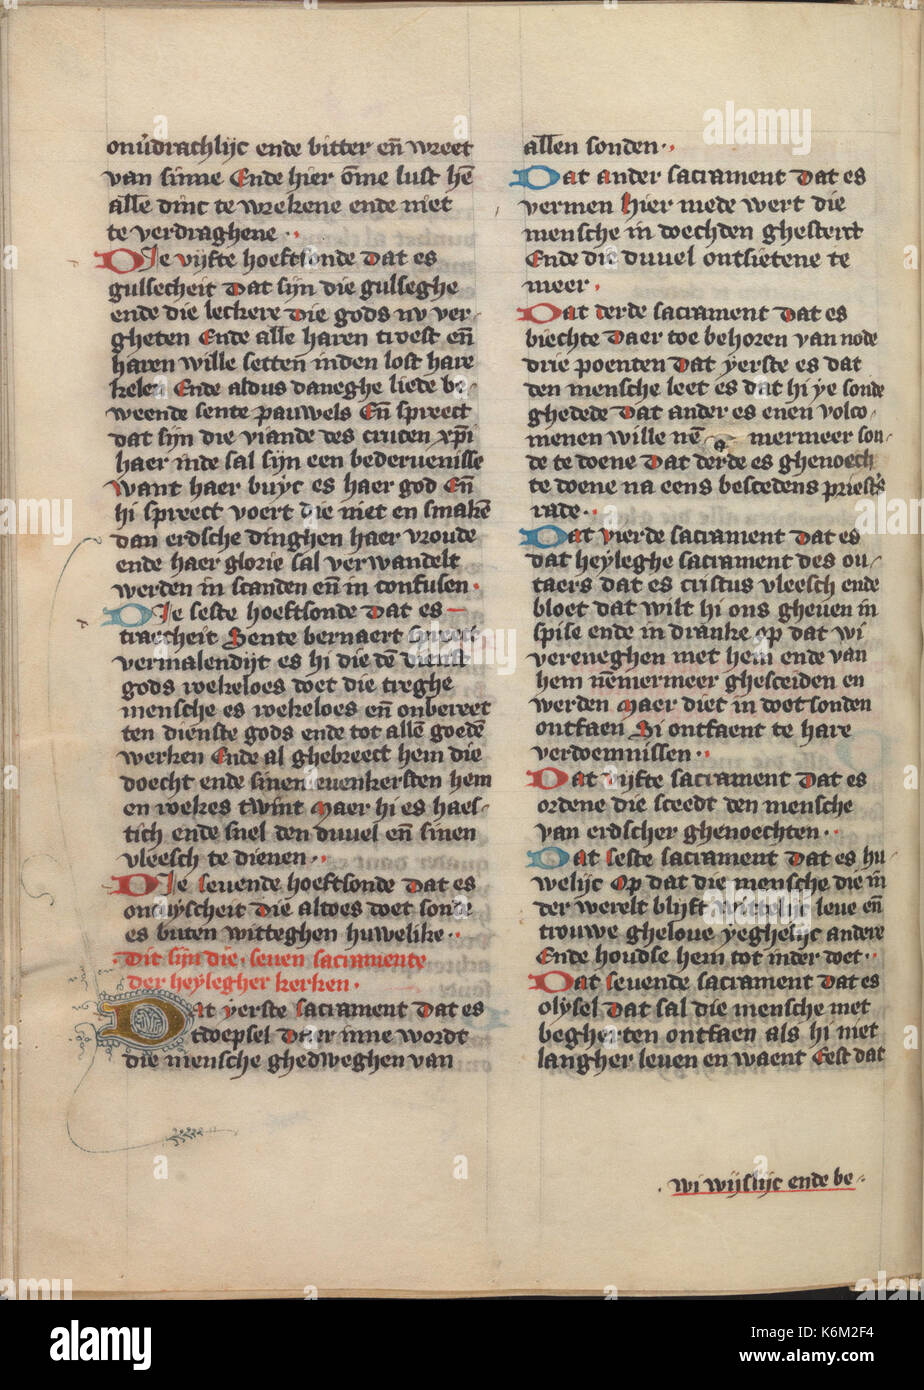 onv̾drachlijc ende bitter en̄ wreet
van sinne Ende hier o̅me lust he̅
alle̅ dinc te wrekene ende niet
te verdraghene ·.
DIe vijfte hoeftsonde Dat es
gulsecheit Dat sijn die gulseghe
ende die leckere Die gods uv ver-
gheten Ende alle haren troest en̄
haren wille setten inden lost hare
kelen Ende aldus daneghe liede be-
weende sente pauwels En̄ spreect
dat sijn die viande des crucen xp̅i
haer inde sal sijn een bederuenisse
want haer buyc es haer god En̄
hi spreect voert die niet en smake̅
dan erdsche dinghen haer vroude
ende haer glorie sal verwandelt
werden in scanden en̄ in confusen ·
DIe seste hoeftsonde Dat es
traecheit Sente bernaert spreect
vermalendijt es hi die de̅ dienst
gods rokeloes doet die treghe
mensche es rokeloes en̄ onbereet
ten dienste gods ende tot alle̅ goede̅
werken Ende al ghebreect hem die
doecht ende sinen euenkersten hem
en rokes twint Maer hi es haes-
tich ende snel den duuel en̄ sinen
vleesch te dienen ·.
DIe seuende hoeftsonde Dat es
oncuyscheit Die altoes doet sonde
es buten witteghen huwelike ·.
Dit sijn die · seuen sacramente
der heylegher kerken ·
Dat yerste sacrament Dat es
doepsel Daer inne wordt
die mensche ghedweghen van
alle̅n sonden ·.
Dat ander sacrament Dat es
vermen Hier mede wert die
mensche in doechden ghesterct
Ende die duuel ontsietene te
meer ·
Dat derde sacrament Dat es
biechte Daer toe behoren van node
drie poenten Dat yerste es dat
den mensche leet es dat hi ye sonde
ghedede Dat ander es enen volco-
menen wille ne̅ mermeer son-
de te doene Dat derde es ghenoech
te doene na eens bescedens priesters
rade ·
Dat vierde sacrament Dat es
dat heyleghe sacrament des ou-
taers dat es cristus vleesch ende
bloet dat wilt hi ons gheuen in
spise ende in dranke op dat wi
vereneghen met hem ende van
hem ne̅mermeer ghesceiden en
werden Maer diet in doet sonden
ontfaen Si ontfaent te hare
verdoemnissen ·.
Dat vijfte sacrament Dat es
ordene die sceedt den mensche
van erdscher ghenoechten ·.
Dat seste sacrament Dat es hu-
welijc Op dat die mensche die in
der werelt blijft wittelijc leue en̄
trouwe gheloue yeghelijc andere
Ende houdse hem tot inder doet ·.
Dat seuende sacrament Dat es
olysel Dat sal die mensche met
begherten ontfaen als hi niet
langher leuen en waent Eest dat
· wi wijslijc ende be ·
alamy
a
Image ID: K6M2F4
www.alamy.com